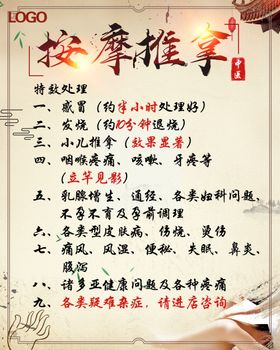 LOGO
按摩推拿
中医
特效处理
一、感冒（约半小时处理好）
二、发烧（约10分钟退烧）
三、小儿推拿（效果显著）
四、咽喉疼痛、咳嗽、牙疼等
（立竿见影）
五、乳腺增生、通经、各类妇科问题、
不孕不育及孕前调理
六、各类型皮肤病、伤烧、烫伤
七、痛风、风湿、便秘、失眠、鼻炎、
腹泻
八、诸多亚健康问题及各种疼痛
九、各类疑难杂症，请进店咨询